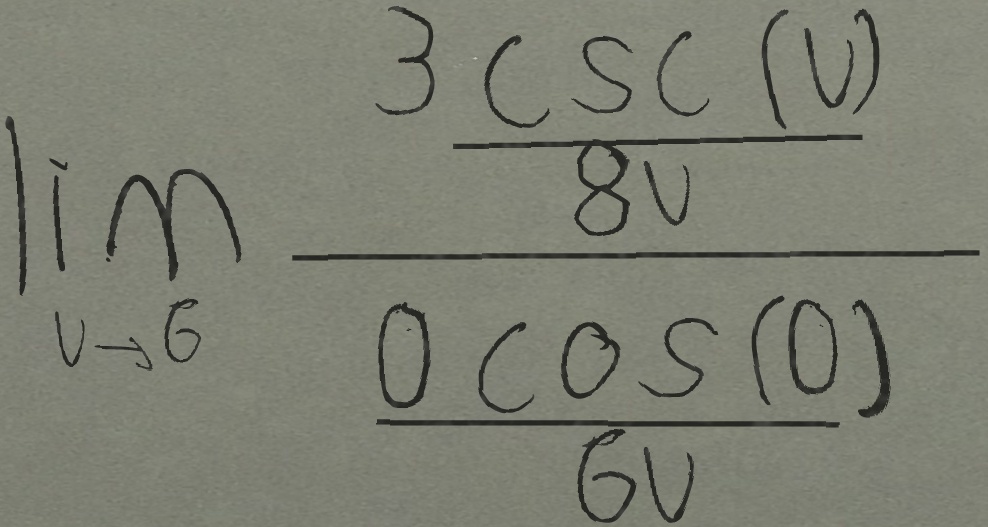 \lim_{v \to 6} \frac{3 \frac{\csc(v)}{8v}}{\frac{0 \cos(0)}{6v}}